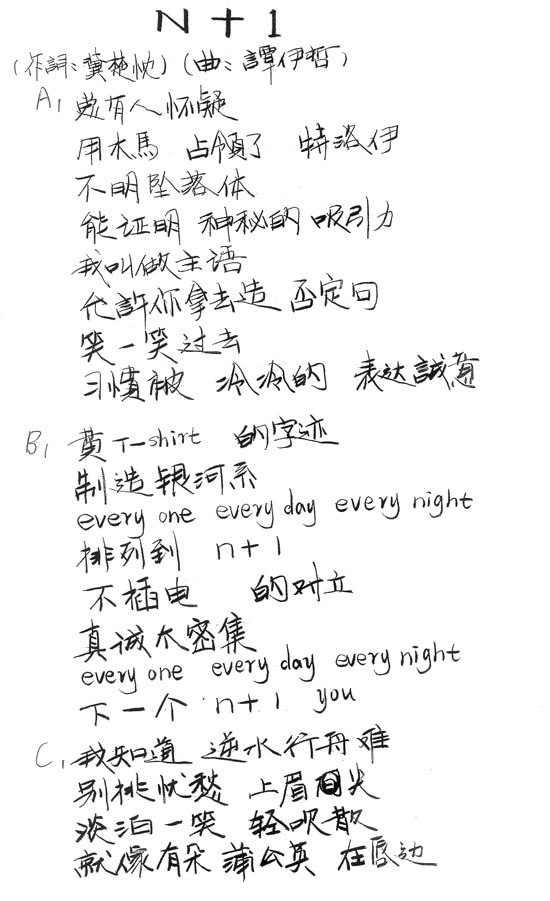 N+1
(作詞:龔楚忱)(曲:譚伊哲)
A1 總有人怀疑
用木馬 占領了 特洛伊
不明坠落体
能证明 神秘的 吸引力
我叫做主语
允許你拿去造 否定句
笑一笑过去
习慣被 冷冷的 表达誠意
B1 黄T-shirt 的字迹
制造银河系
every one every day every night
排列到 n+1
不插电 的对立
真诚太密集
every one every day every night
下一个 n+1 you
C1 我知道 逆水行舟难
别排忧愁 上眉尖
淡泊一笑 轻吹散
就像有朵 蒲公英 在唇边